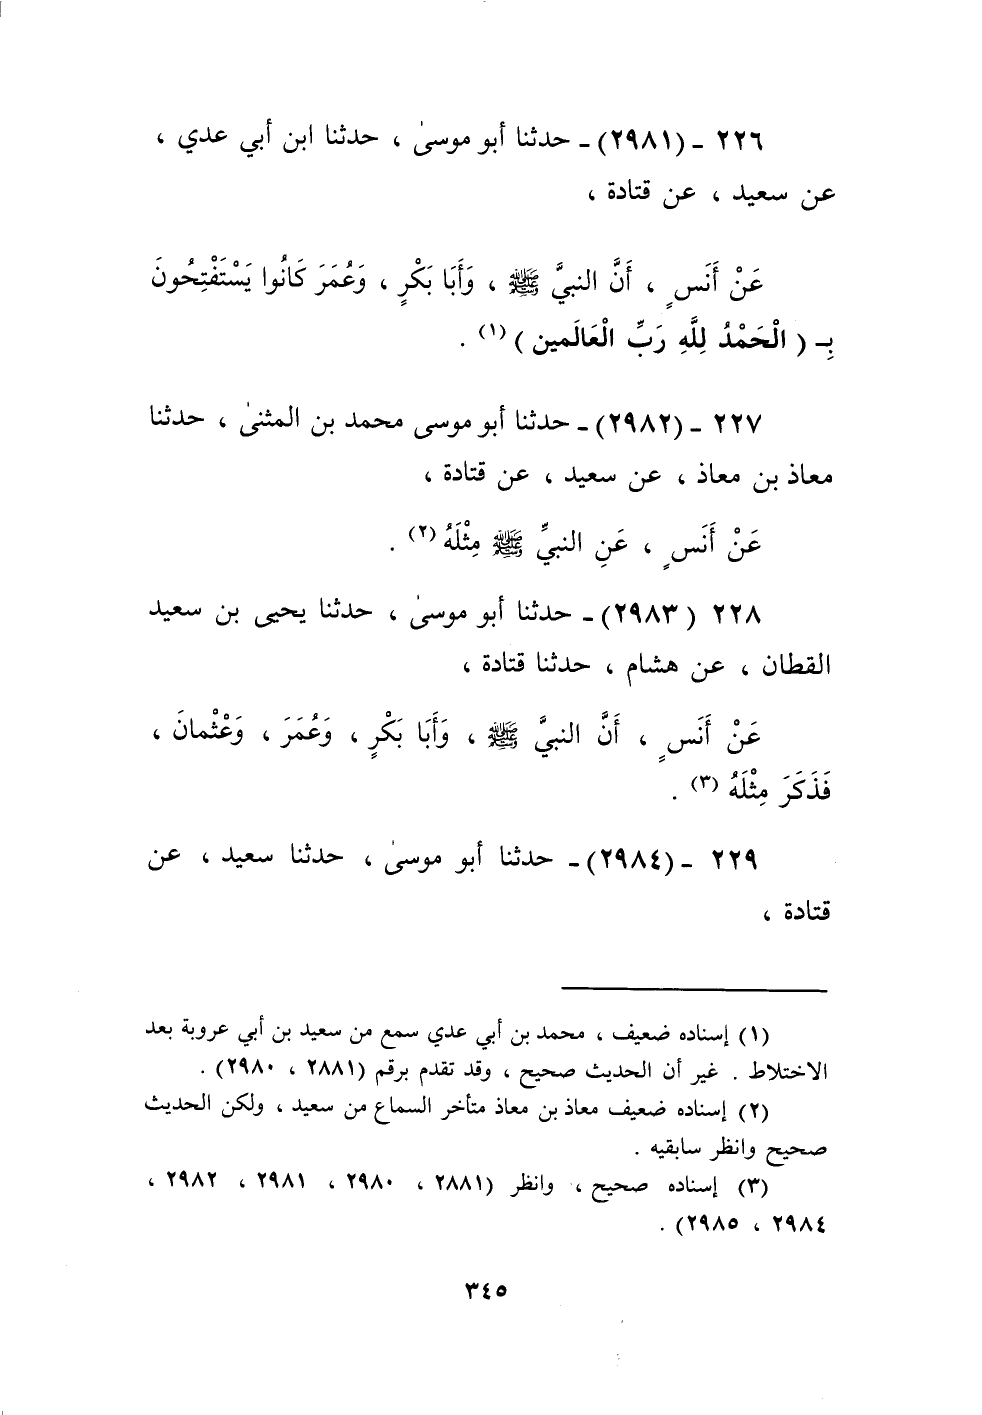 ٢٢٦ - (٢٩٨١) - حدثنا أبو موسىٰ ، حدثنا ابن أبي عدي ،
عن سعيد ، عن قتادة ،
عَنْ أَنَسٍ ، أَنَّ النبيَّ ﷺ ، وَأَبَا بَكْرٍ ، وَعُمَرَ كَانُوا يَسْتَفْتِحُونَ
بِـ ( الْحَمْدُ لِلَّهِ رَبِّ الْعَالَمين ) (١) .
٢٢٧ - (٢٩٨٢) - حدثنا أبو موسى محمد بن المثنىٰ ، حدثنا
معاذ بن معاذ ، عن سعيد ، عن قتادة ،
عَنْ أَنَسٍ ، عَنِ النبيِّ ﷺ مِثْلَهُ (٢) .
٢٢٨ ( ٢٩٨٣) - حدثنا أبو موسىٰ ، حدثنا يحيى بن سعيد
القطان ، عن هشام ، حدثنا قتادة ،
عَنْ أَنَسٍ ، أَنَّ النبيَّ ﷺ ، وَأَبَا بَكْرٍ ، وَعُمَرَ ، وَعْثْمانَ ،
فَذَكَرَ مِثْلَهُ (٣) .
٢٢٩ - (٢٩٨٤) - حدثنا أبو موسىٰ ، حدثنا سعيد ، عن
قتادة ،
(١) إسناده ضعيف ، محمد بن أبي عدي سمع من سعيد بن أبي عروبة بعد
الاختلاط . غير أن الحديث صحيح ، وقد تقدم برقم (٢٨٨١ ، ٢٩٨٠) .
(٢) إسناده ضعيف معاذ بن معاذ متأخر السماع من سعيد ، ولكن الحديث
صحيح وانظر سابقيه .
(٣) إسناده صحيح ، وانظر (٢٨٨١ ، ٢٩٨٠ ، ٢٩٨١ ، ٢٩٨٢ ،
٢٩٨٤ ، ٢٩٨٥) .
٣٤٥